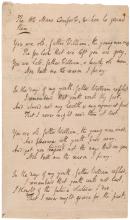 The Old Mans Comforts, & how he gained
them
You are old, Father William, the young man cried
The few locks that are left you are grey
You are hale, Father William, a hearty old man
Now tell me the reason I pray
In the days of my youth Father William replied
I remember'd that youth would fly fast
And abused not my health & my vigour at first
That I never might need them at last
You are old, Father William, the young man cried
And pleasures with youth pass away
And yet you lament not the days that are gone
Now tell me the reason I pray
In the days of my youth Father William replied
I remember'd that youth could not last
I thought of the future whatever I did
That I never might grieve for the past.